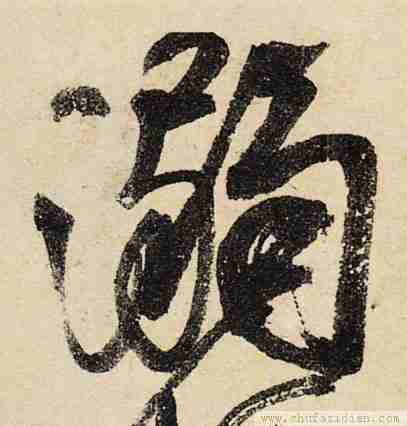 溺
www.shufazidian.com